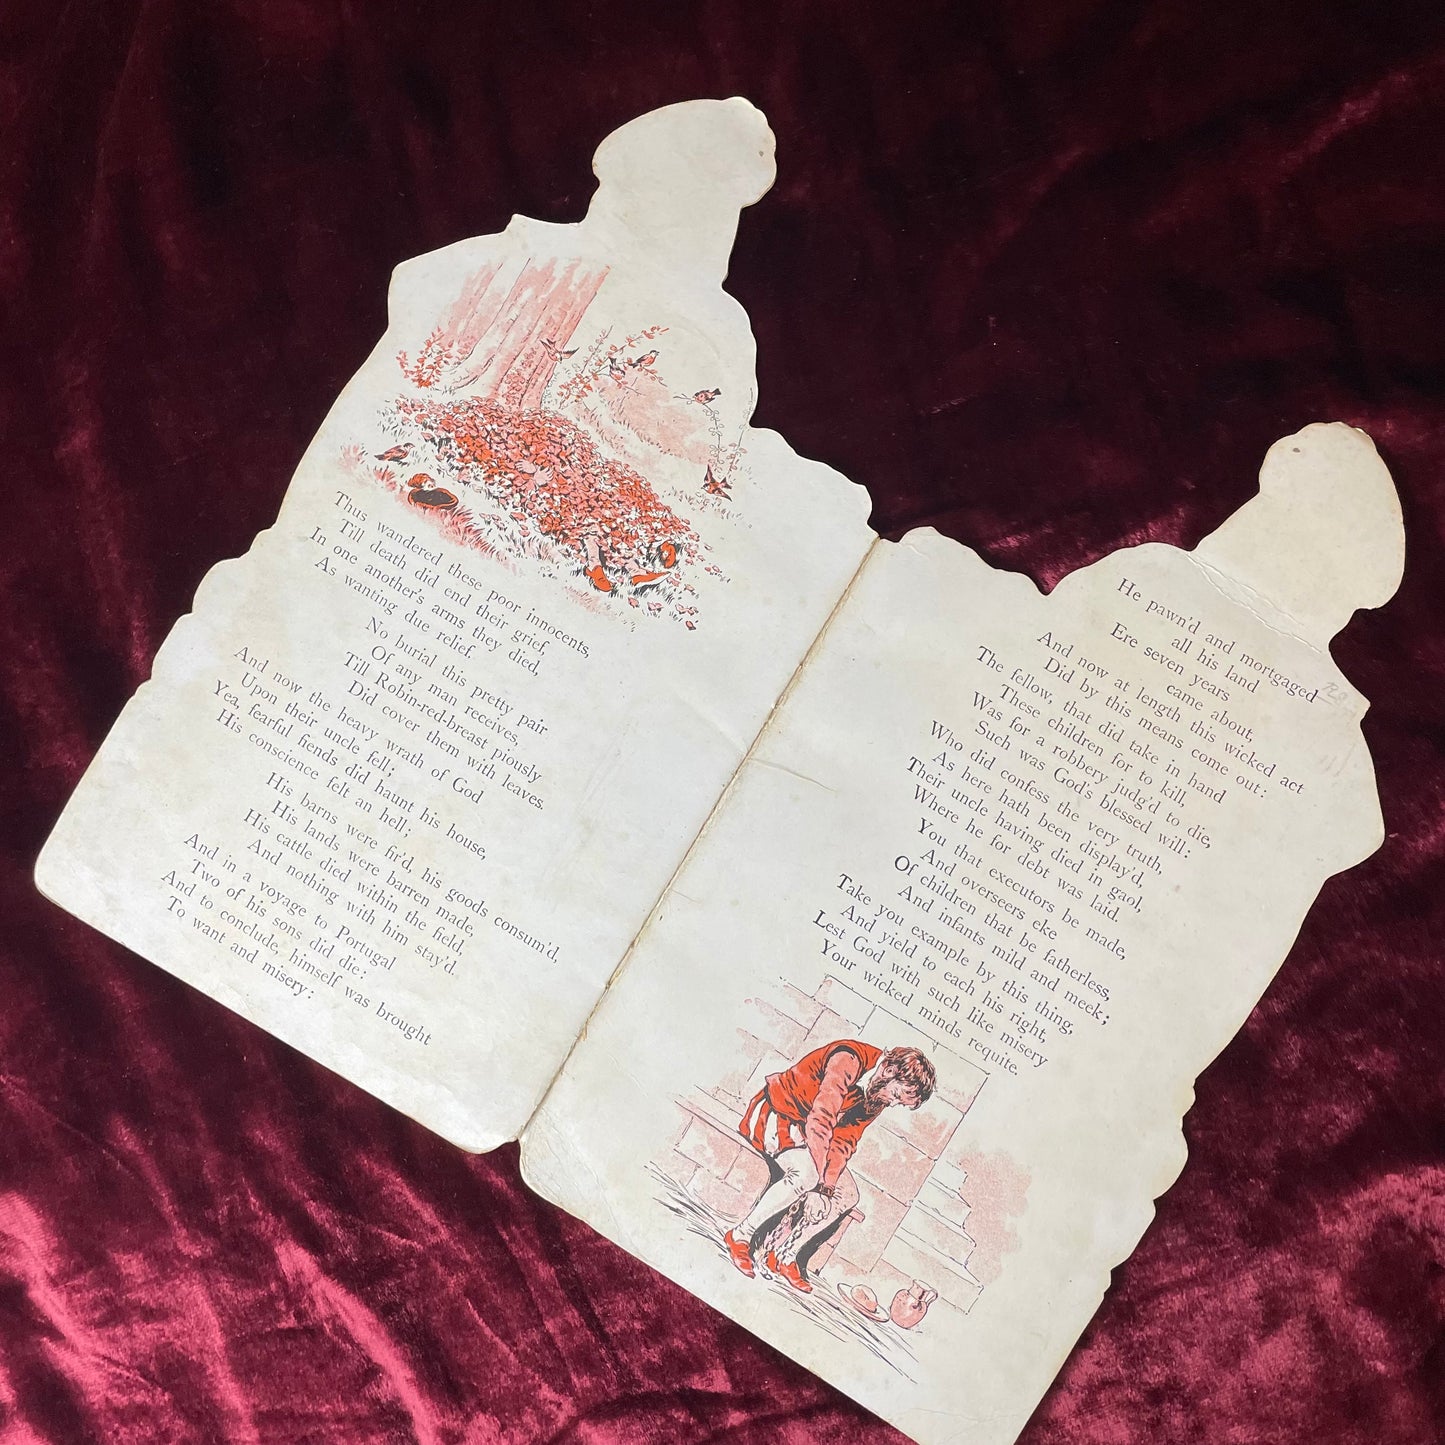 Thus wandered these poor innocents,
Till death did end their grief,
In one another's arms they died,
As wanting due relief.
No burial this pretty pair
Of any man receives,
Till Robin-red-breast piously
Did cover them with leaves.
And now the heavy wrath of God
Upon their uncle fell;
Yea, fearful fiends did haunt his house,
His conscience felt an hell;
His barns were fir'd, his goods consum'd,
His lands were barren made,
His cattle died within the field,
And nothing with him stay'd.
And in a voyage to Portugal
Two of his sons did die;
And to conclude, himself was brought
To want and misery:
He pawn'd and mortgaged
all his land
Ere seven years
came about,
And now at length this wicked act
Did by this means come out:
The fellow, that did take in hand
These children for to kill,
Was for a robbery judg'd to die,
Such was God's blessed will:
Who did confess the very truth,
As here hath been display'd,
Their uncle having died in gaol,
Where he for debt was laid.
You that executors be made,
And overseers eke
Of children that be fatherless,
And infants mild and meek;
Take you example by this thing,
And yield to each his right,
Lest God with such like misery
Your wicked minds requite.